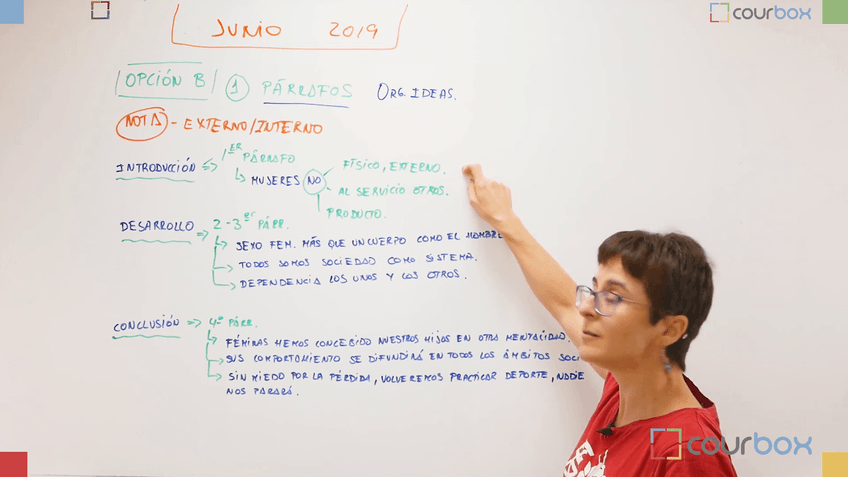 courbox
JUNIO 2019
OPCIÓN B 1 PÁRRAFOS ORG. IDEAS.
NOTA - EXTERNO/INTERNO
INTRODUCCIÓN => 1ER PÁRRAFO
MUJERES NO
FÍSICO, EXTERNO.
AL SERVICIO OTROS.
PRODUCTO.
DESARROLLO => 2-3er PÁRR.
SEXO FEM. MÁS QUE UN CUERPO COMO EL HOMBRE
TODOS SOMOS SOCIEDAD COMO SISTEMA.
DEPENDENCIA LOS UNOS Y LOS OTROS.
CONCLUSIÓN => 4º PÁRR.
FÉMINAS HEMOS CONCEBIDO NUESTROS HIJOS EN OTRA MENTALIDAD.
SUS COMPORTAMIENTO SE DIFUNDIRÁ EN TODOS LOS ÁMBITOS SOCI
SIN MIEDO POR LA PÉRDIDA, VOLVEREMOS PRACTICAR DEPORTE, NADIE
NOS PARARÁ.
courbox